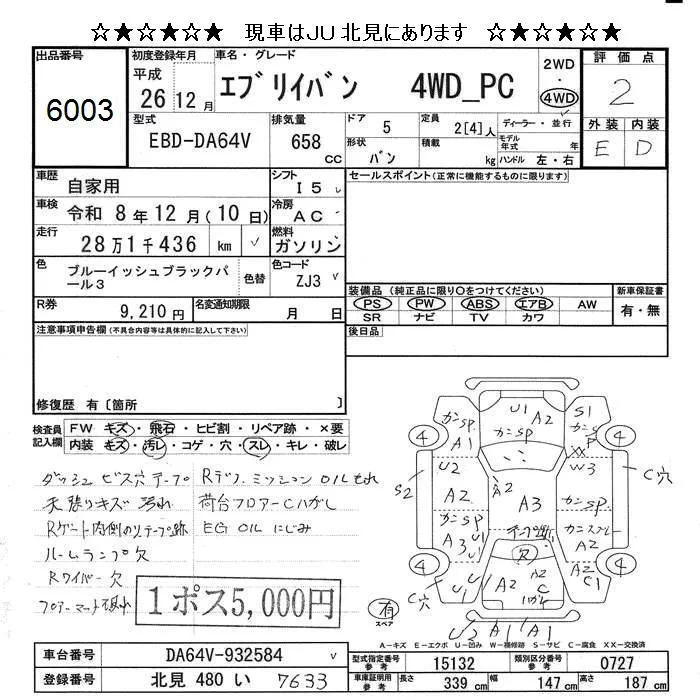 ☆★☆★☆★ 現車はJU北見にあります ☆★☆★☆★
出品番号
6003
初度登録年月
平成
26 12月
車名・グレード
エブリイバン 4WD_PC
2WD
・
4WD
評価点
2
外装 内装
E D
型式
EBD-DA64V
排気量
658
CC
ドア
5
定員
2[4]人
ディーラー・並行
モデル年式 年
形状
バン
積載
kg
ハンドル 左・右
車歴
自家用
シフト
I5
車検
令和 8年12月(10日)
冷房
AC
走行
28万1千436 km
燃料
ガソリン
色
ブルーイッシュブラックパール3
色替
色コード
ZJ3
R券
9,210円
名変通知期限
月 日
セールスポイント(正常に機能するものに限ります)
装備品(純正品に限り○をつけてください)
PS PW ABS エアB AW
SR ナビ TV カワ
新車保証書
有・無
後日品
注意事項申告欄(不具合内容等は具体的に記入して下さい)
修復歴 有〔箇所 〕
検査員記入欄
FW キズ・飛石・ヒビ割・リペア跡・×要
内装 キズ・汚レ・コゲ・穴・スレ・キレ・破レ
ダッシュ ビス穴 テープ
天張りキズ 汚れ
Rゲート内側のリテープ跡
ルームランプ欠
Rワイパー欠
フロアーマット破れ
Rデフ.ミッションOILもれ
荷台フロアーCハガレ
EG OIL にじみ
1ポス5,000円
カンSP
A1
U1
A2
カンSP
S1
カンSP
4
4
U2
XX
W3
C穴
S2
A2
A2
A3
カンSP
カンSP
テープ跡
カンスプレー
A3
U1
欠
A2
4
4
U1
U1
A2
A2
C1
ハガレ
A2
C1
C穴
有
スペア
U2 A1 A1
A-キズ E-エクボ U-凹み W-補修跡 S-サビ C-腐食 XX-交換済
車台番号
DA64V-932584
登録番号
北見 480 い 7633
型式指定番号
参考
15132
類別区分番号
参考
0727
車庫証明用
参考
長さ
339 cm
幅
147 cm
高さ
187 cm